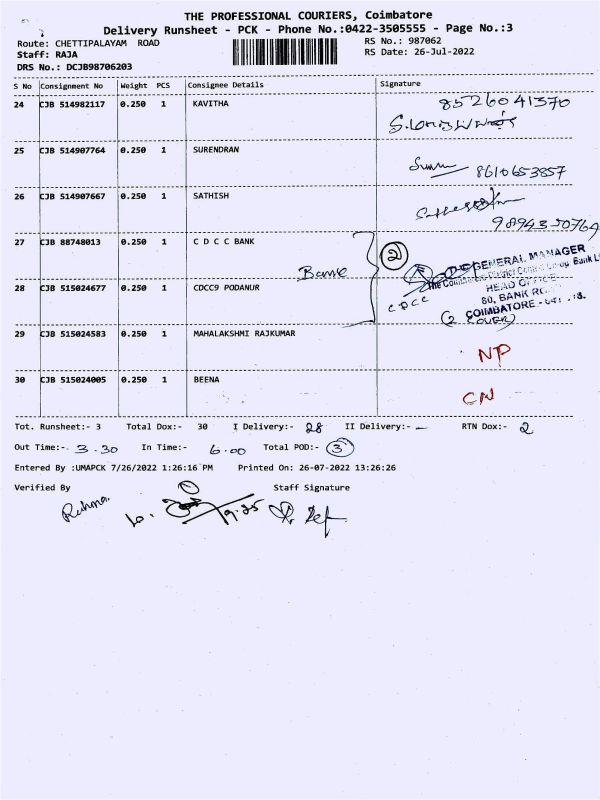 THE PROFESSIONAL COURIERS, Coimbatore
Delivery Runsheet - PCK - Phone No.:0422-3505555 - Page No.:3
Route: CHETTIPALAYAM ROAD
RS No.: 987062
Staff: RAJA
RS Date: 26-Jul-2022
DRS No.: DCJB98706203
S No Consignment No Weight PCS Consignee Details Signature
24 CJB 514982117 0.250 1 KAVITHA 8526041370
25 CJB 514907764 0.250 1 SURENDRAN 8610653857
26 CJB 514907667 0.250 1 SATHISH
27 CJB 88748013 0.250 1 C D C C BANK 2
THE GENERAL MANAGER
HEAD OFFICE
80, BANK
COIMBATORE -
28 CJB 515024677 0.250 1 CDCC9 PODANUR CDCC
(2 COVER)
29 CJB 515024583 0.250 1 MAHALAKSHMI RAJKUMAR NP
30 CJB 515024005 0.250 1 BEENA CN
Tot. Runsheet:- 3 Total Dox:- 30 I Delivery:- 28 II Delivery:- - RTN Dox:- 2
Out Time:- 3.30 In Time:- 6.00 Total POD:- 3
Entered By :UMAPCK 7/26/2022 1:26:16 PM Printed On: 26-07-2022 13:26:26
Verified By Staff Signature